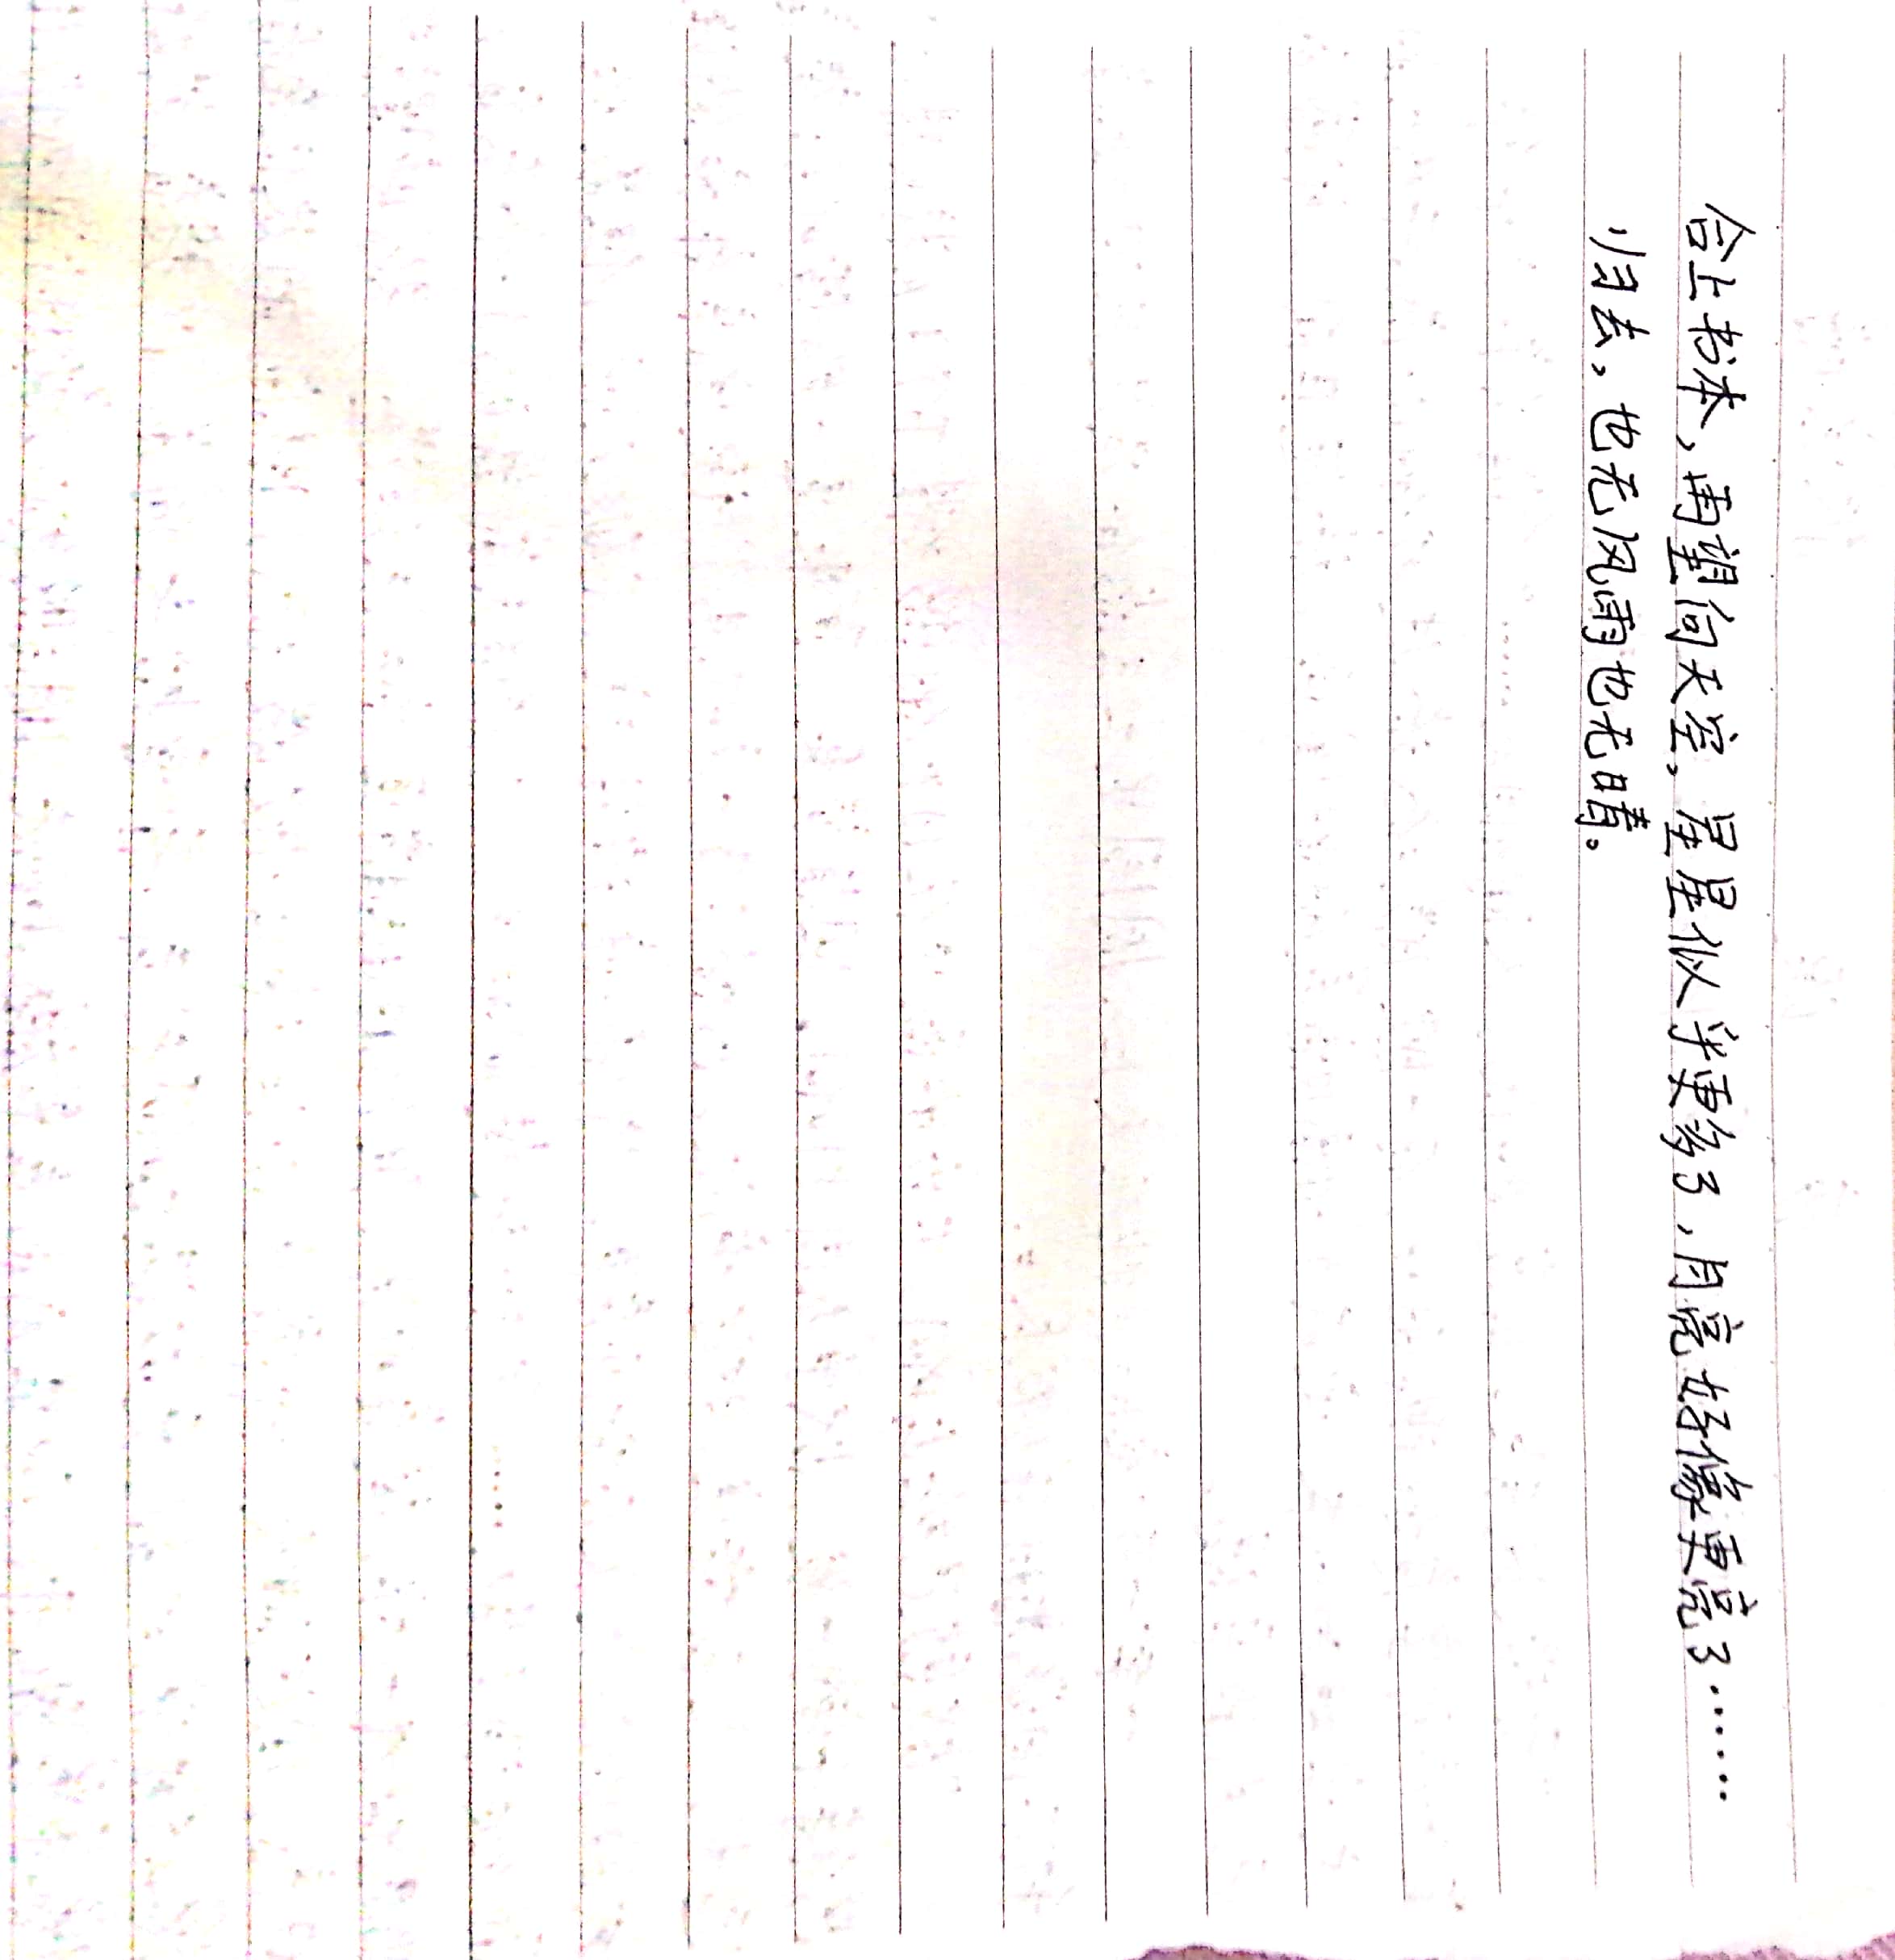 合上书本，再望向天空，星星似乎更多了，月亮好像更亮了……
归去，也无风雨也无晴。